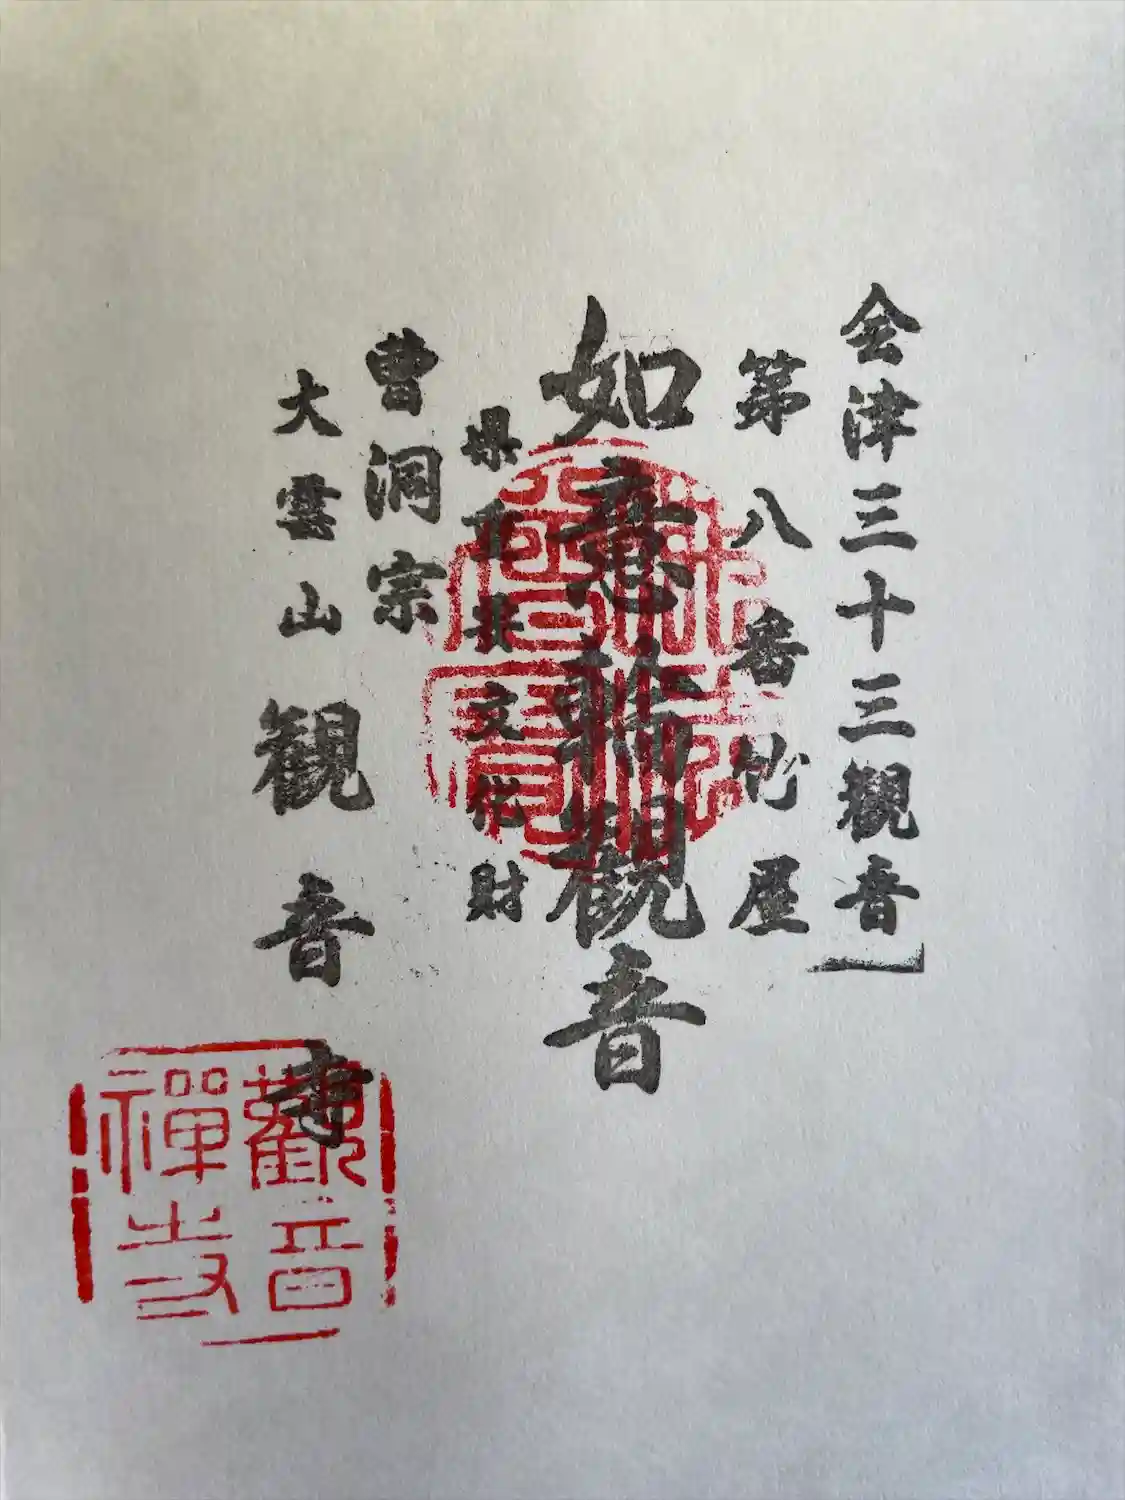 会津三十三観音
第八番竹屋
如意輪観音
県重要文化財
曹洞宗
大雲山観音寺
佛法僧寶
觀音
禪寺